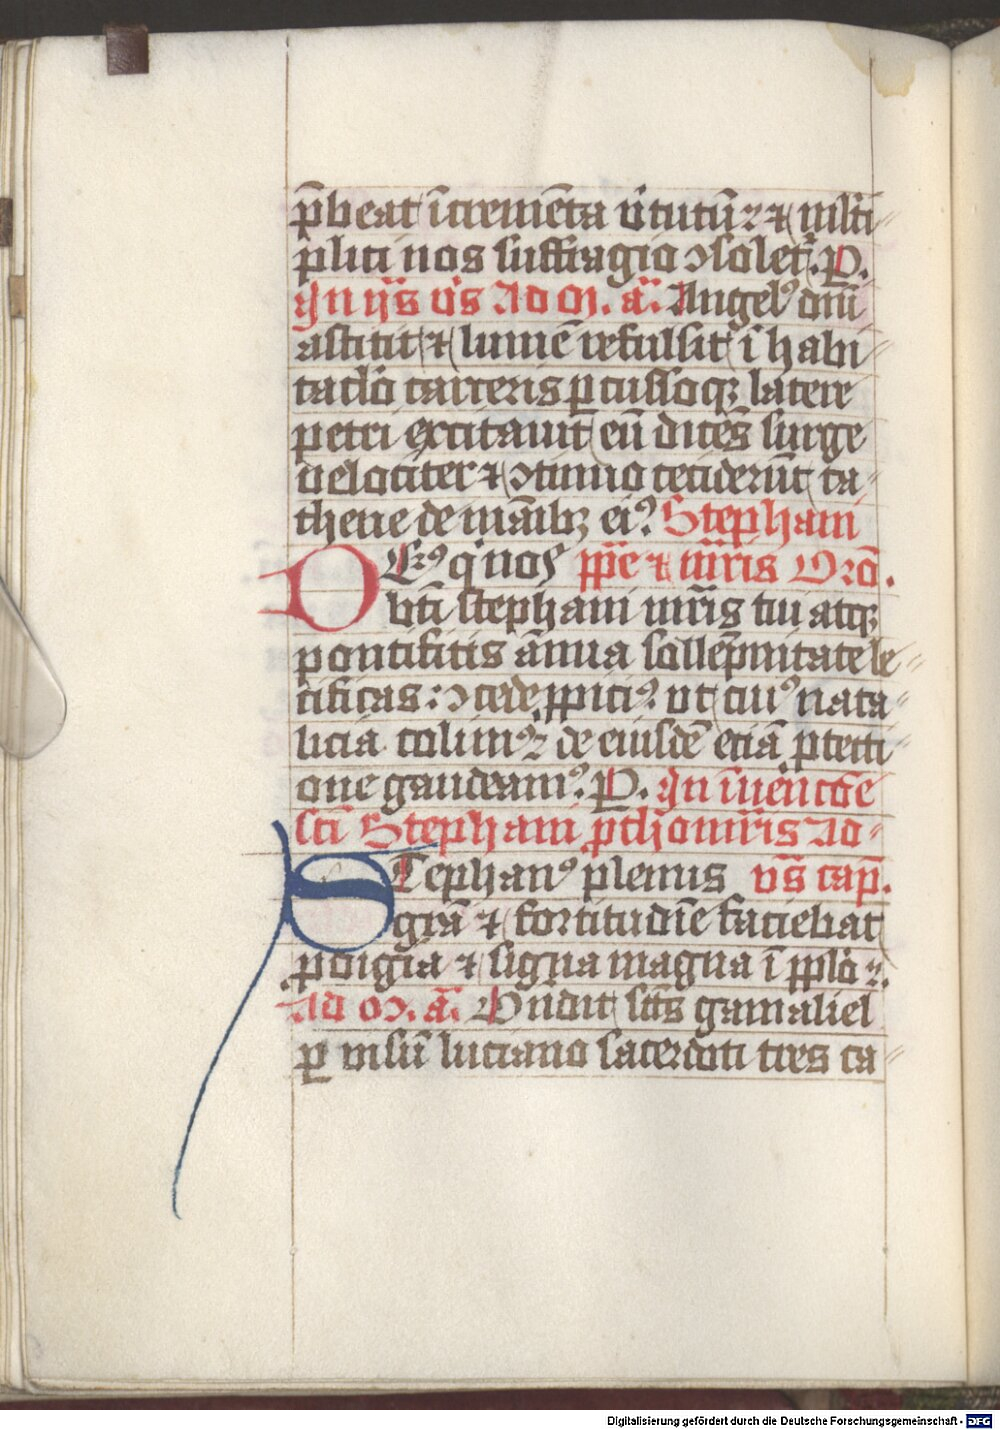 p̄beat īcremēta v̄tutū ⁊ ml̄ti
plici nos suffragio ɔsolet᷑. P.
Jn ij̄s v̄s Ad M. a᷑. Angelꝰ dnī
astitit ⁊ lumē refulsit ī habi
taclo᷑ carceris ꝑcussoqꝫ latere
petri excitauit eū dicēs surge
velociter ⁊ ɔtinuo ceciderūt ca
thene de manībꝫ eiꝰ Stephani
DEꝰ q nos pp̄e ⁊ mr̄is Orō.
btī stephani mr̄is tui atqꝫ
pontificis ānua sollēpnitate le
tificas: ɔcede ꝓpiciꝰ vt cuiꝰ nata
licia colimꝰ de eiusdē eciā ꝓtecti
one gaudeamꝰ. P. Jn īuencōe
scī Stephani ꝓthomr̄is Ad
STephanꝰ plenus vs̄ cap̄.
grā ⁊ fortitudīe faciebat
ꝓdigia ⁊ signa magna ī ppl̄o
Ad M. a᷑. Ondit sc̄s gamaliel
ꝑ visū luciano sacerdoti tres ca
Digitalisierung gefördert durch die Deutsche Forschungsgemeinschaft - DFG